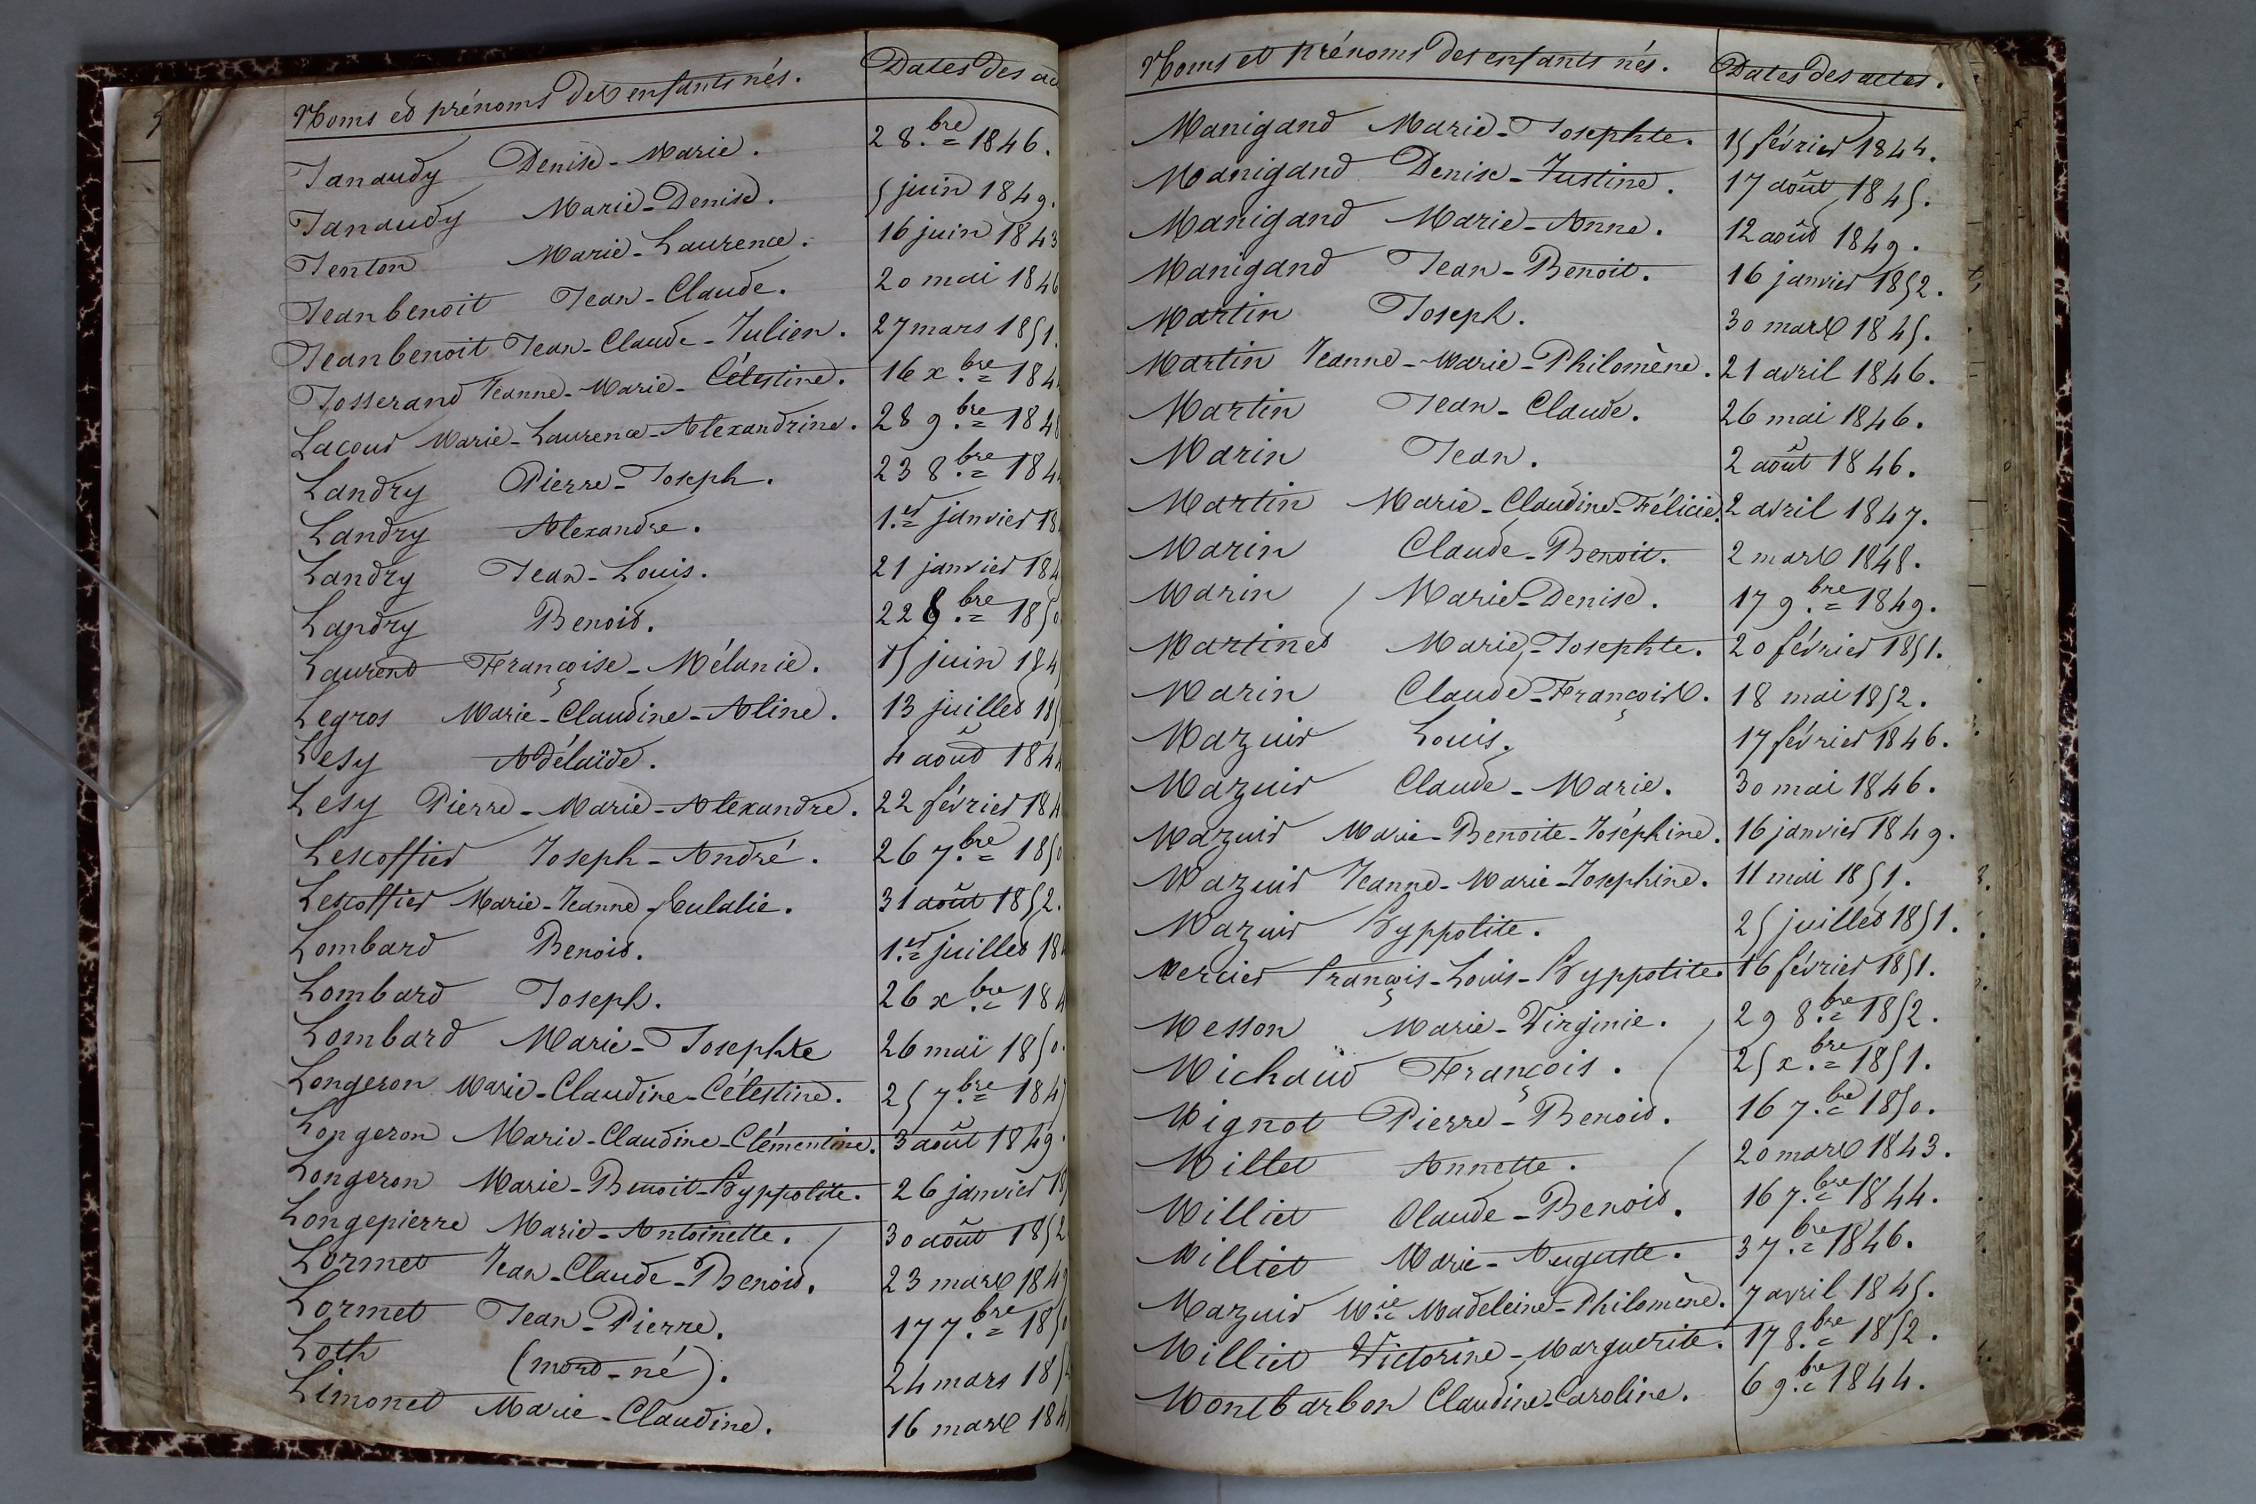 Noms et prénoms des enfants nés. Dates des ac
Janaudy Denise-Marie. 2 8.bre 1846.
Janaudy Marie-Denise. 5 juin 1849.
Jenton Marie-Laurence. 16 juin 1843
Jeanbenoit Jean-Claude. 20 mai 1846
Jeanbenoit Jean-Claude-Julien. 27 mars 1851.
Josserand Jeanne-Marie-Célestine. 16 x.bre 184
Lacour Marie-Laurence-Alexandrine. 28 9.bre 184
Landry Pierre-Joseph. 23 8.bre 184
Landry Alexandre. 1.er janvier 18
Landry Jean-Louis. 21 janvier 184
Landry Benoit. 22 bre 185
Laurent Françoise-Mélanie. 15 juin 184
Legros Marie-Claudine-Aline. 13 juillet 185
Lesy Adélaïde. 4 août 184
Lesy Pierre-Marie-Alexandre. 22 février 184
Lescoffier Joseph-André. 26 7.bre 1850
Lescoffier Marie-Jeanne-Eulalie. 31 août 1852.
Lombard Benoit. 1.er juillet 18
Lombard Joseph. 26 x.bre 184
Lombard Marie-Josephte 26 mai 1850.
Longeron Marie-Claudine-Célestine. 25 7.bre 184
Longeron Marie-Claudine-Clémentine. 3 août 1849.
Longeron Marie-Benoit-Hyppolite. 26 janvier 18
Longepierre Marie-Antoinette. 30 août 1852
Lormet Jean-Claude-Benoit. 23 mars 1849
Lormet Jean-Pierre. 17 7.bre 185
Loth (mort-né). 24 mars 185
Limonet Marie-Claudine. 16 mars 184
Noms et prénoms des enfants nés. Dates des actes.
Manigand Marie-Josephte. 15 février 1844.
Manigand Denise-Justine. 17 août 1845.
Manigand Marie-Anne. 12 août 1849.
Manigand Jean-Benoit. 16 janvier 1852.
Martin Joseph. 30 mars 1845.
Martin Jeanne-Marie-Philomène. 21 avril 1846.
Martin Jean-Claude. 26 mai 1846.
Marin Jean. 2 août 1846.
Martin Marie-Claudine-Félicie. 2 avril 1847.
Marin Claude-Benoit. 2 mars 1848.
Marin Marie-Denise. 17 9.bre 1849.
Martinet Marie-Josephte. 20 février 1851.
Marin Claude-François. 18 mai 1852.
Mazuir Louis. 17 février 1846.
Mazuir Claude-Marie. 30 mai 1846.
Mazuir Marie-Benoite-Joséphine. 16 janvier 1849.
Mazuir Jeanne-Marie-Josephine. 11 mai 1851.
Mazuir Hyppolite. 25 juillet 1851.
Mercier François-Louis-Hyppolite. 16 février 1851.
Messon Marie-Virginie. 29 8.bre 1852.
Michaud François. 25 x.bre 1851.
Mignot Pierre-Benoit. 16 7.bre 1850.
Millet Annette. 20 mars 1843.
Milliet Claude-Benoit. 16 7.bre 1844.
Milliet Marie-Auguste. 3 7.bre 1846.
Mazuir M.ie Madeleine-Philomène. 7 avril 1845.
Milliet Victorine-Marguerite. 17 8.bre 1852.
Montbarbon Claudine-Caroline. 6 9.bre 1844.